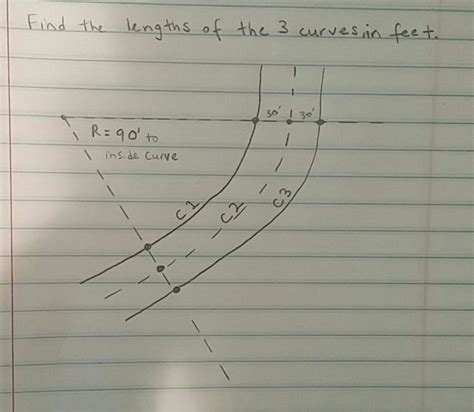 Find the lengths of the 3 curves, in feet.
30' 30'
R = 90' to
inside curve
C1 C2 C3